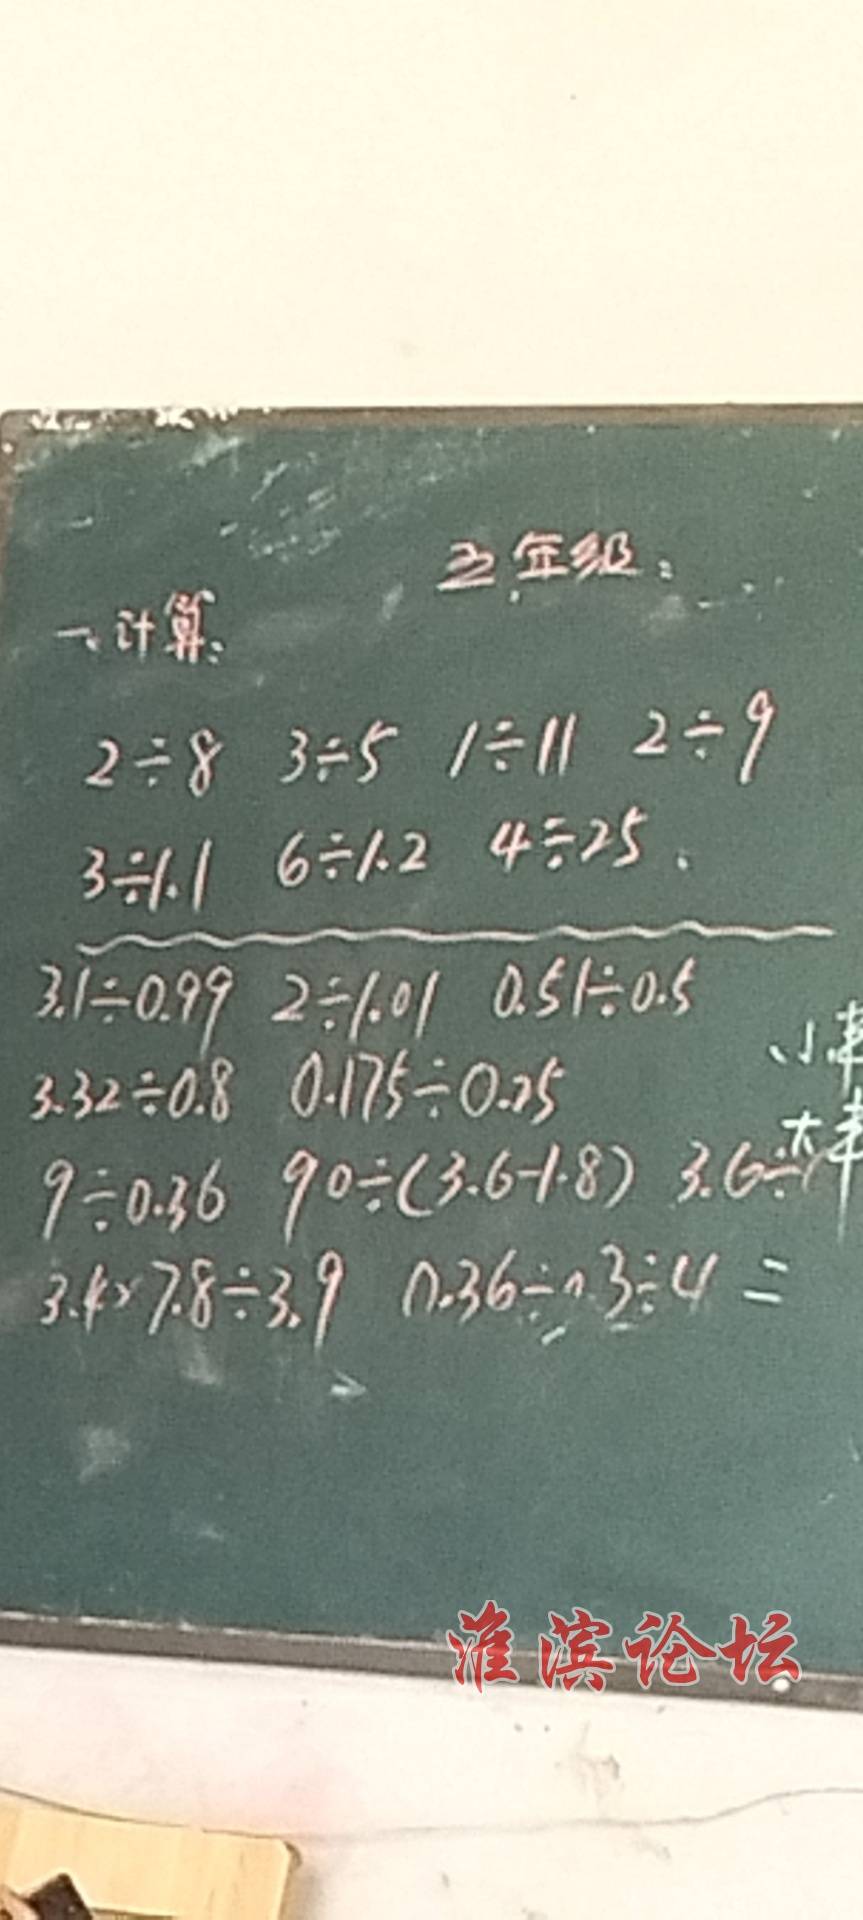 五年级:
一、计算:
2÷8 3÷5 1÷11 2÷9
3÷1.1 6÷1.2 4÷25、
3.1÷0.99 2÷1.01 0.51÷0.5
3.32÷0.8 0.175÷0.25
9÷0.36 90÷(3.6-1.8) 3.6÷
3.4×7.8÷3.9 0.36÷0.3÷4 =
小
大
淮滨论坛